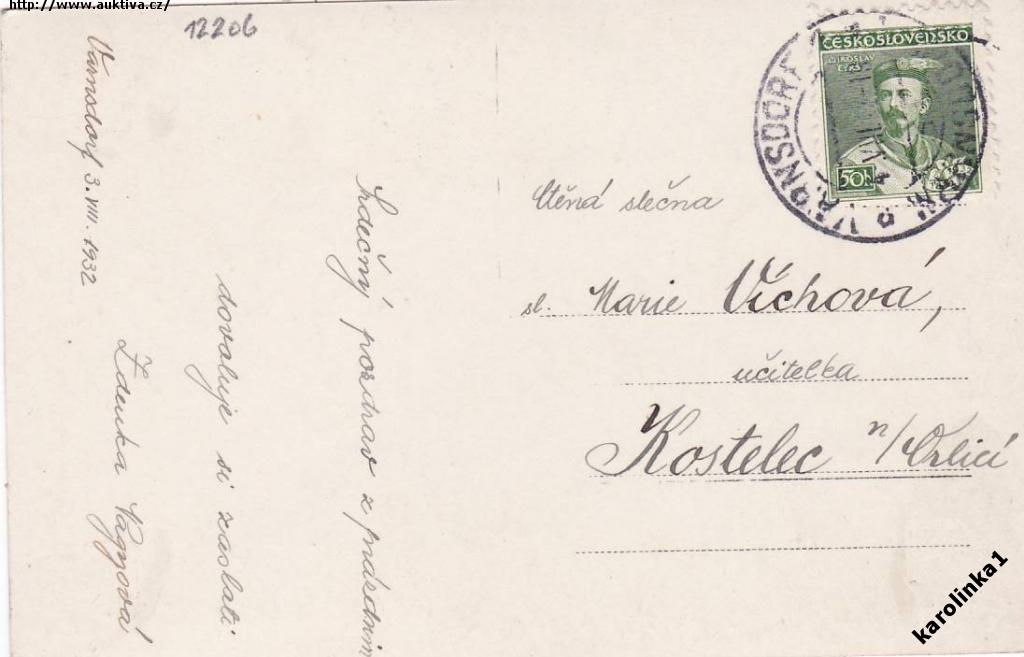 http://www.auktiva.cz/
12206
Varnsdorf 3. VIII. 1932
Srdečný pozdrav z prázdnin
dovoluje si zaslati
Zdenka
ČESKOSLOVENSKO
MIROSLAV
TYRŠ
50h
VARNSDORF
Ctěná slečna
sl. Marie Víchová,
učitelka
Kostelec n/Orlicí
karolinka1